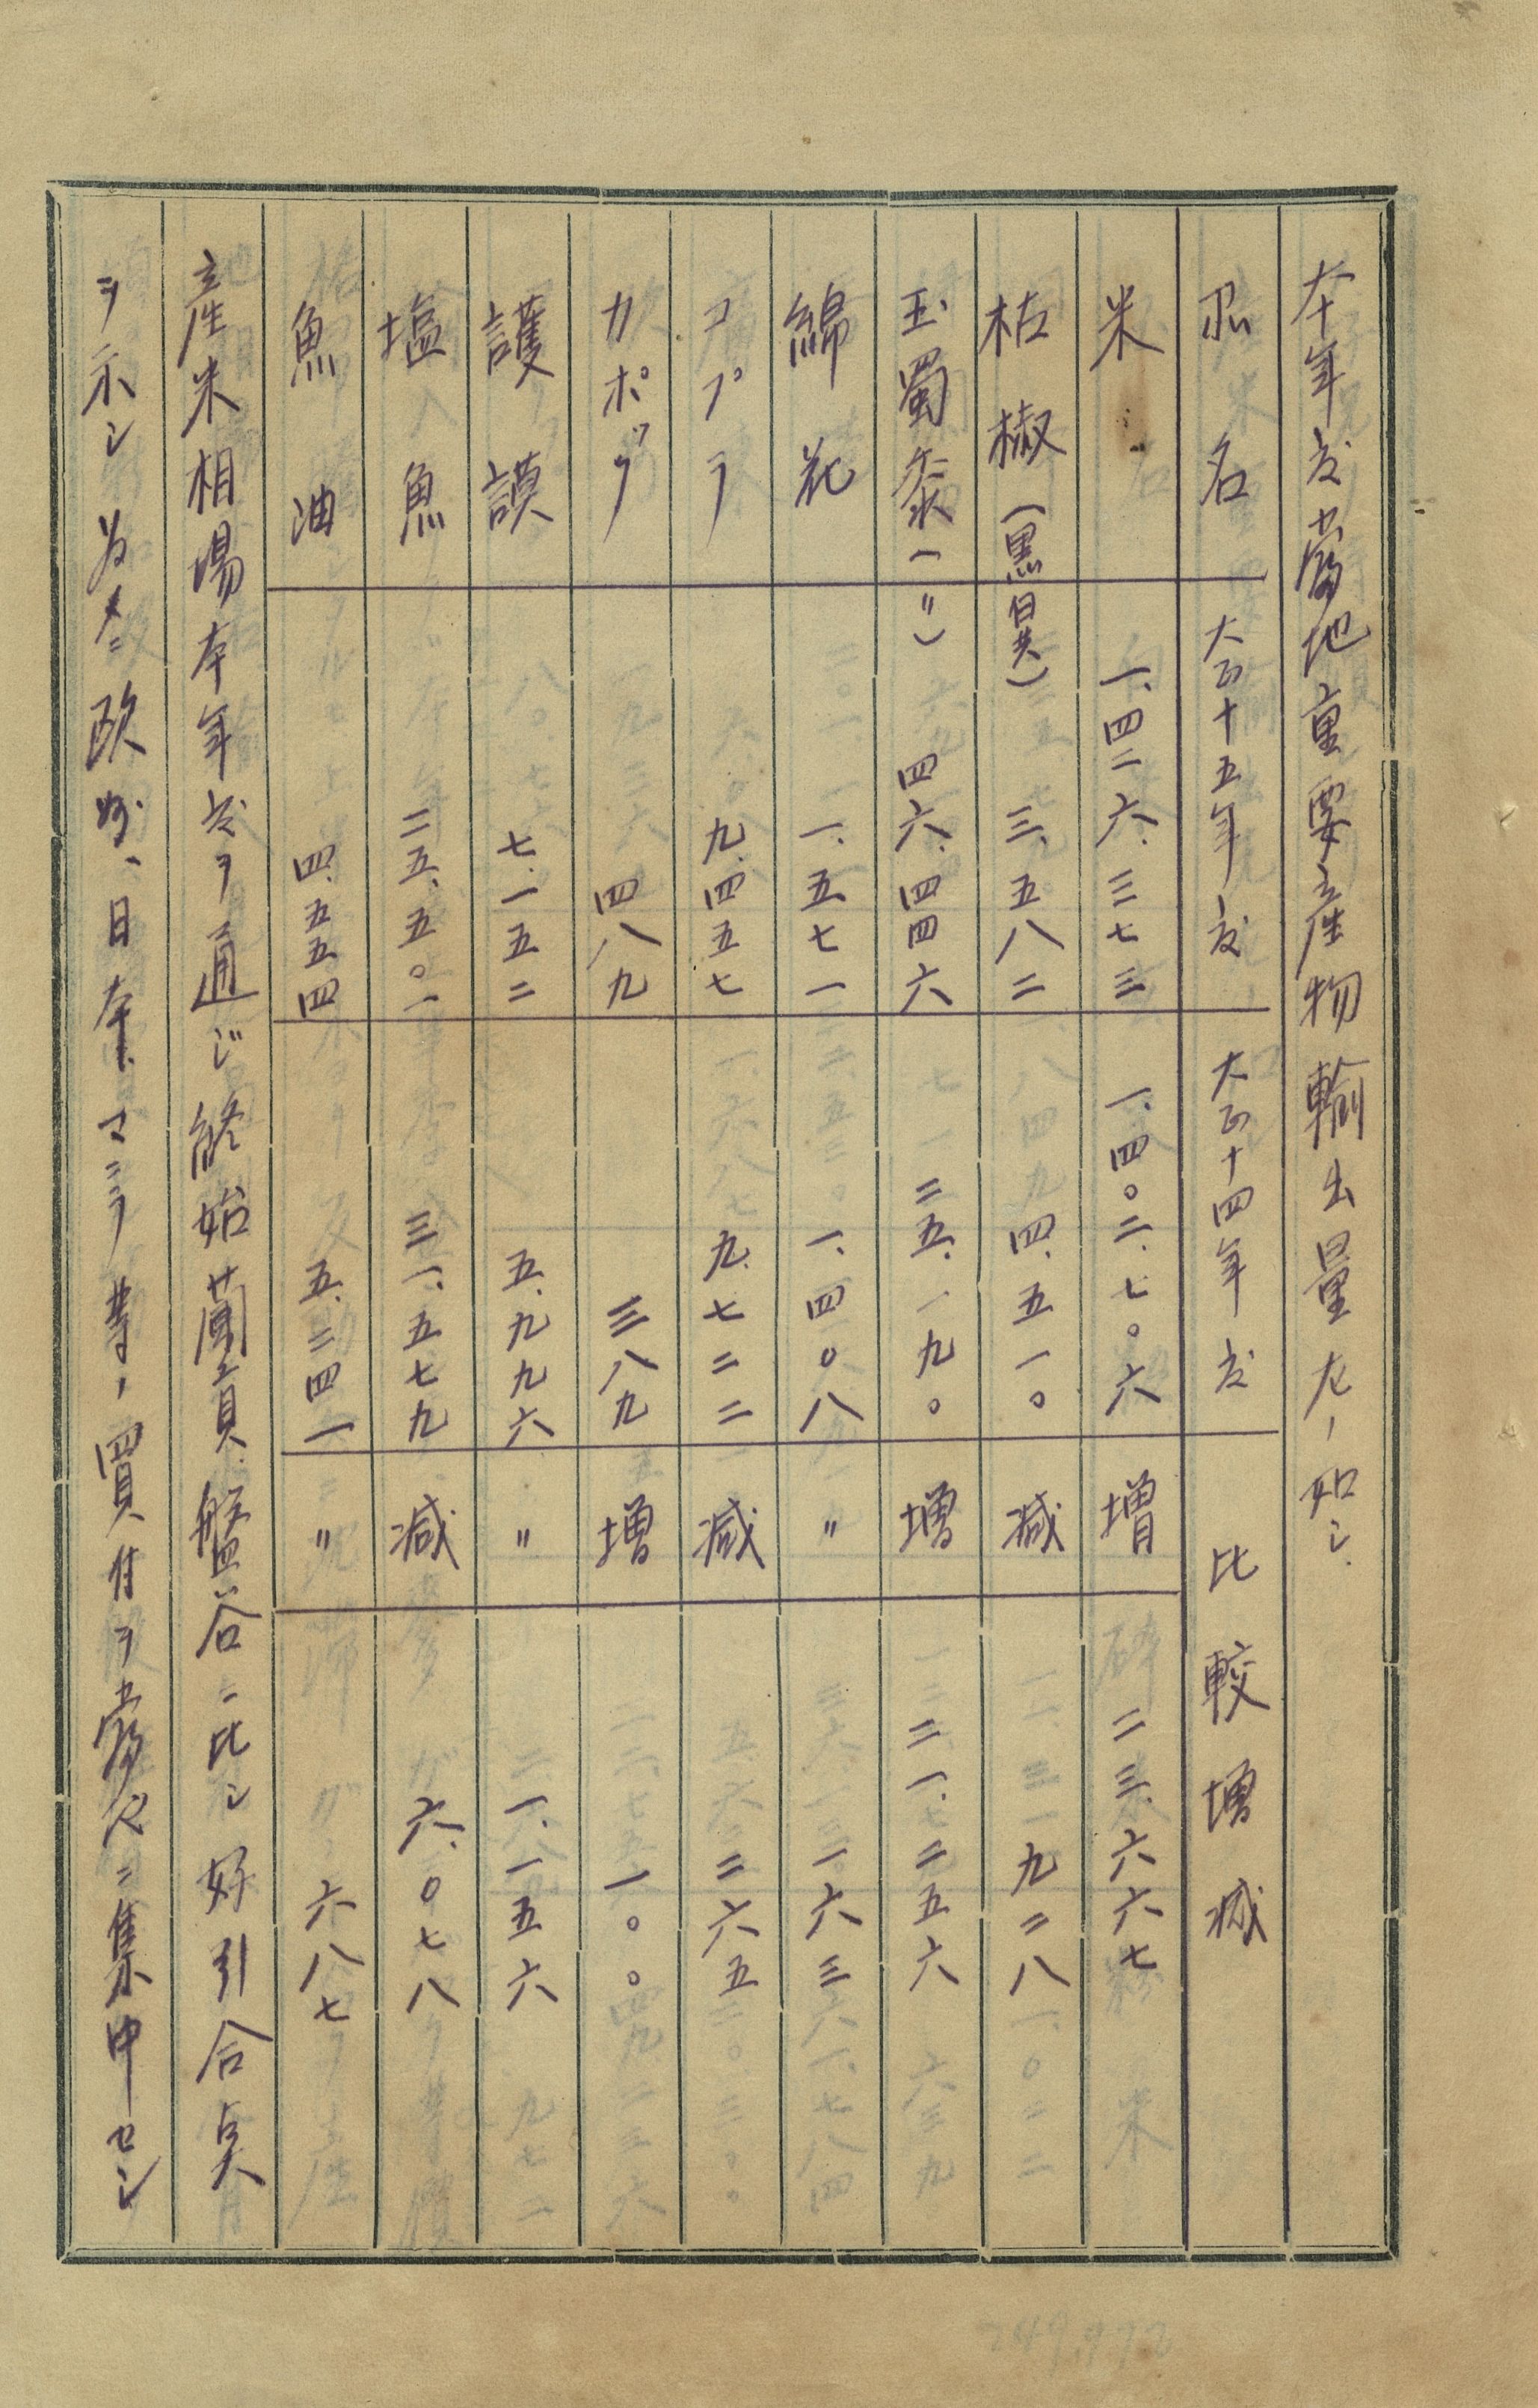 本年度当地重要産物輸出量左ノ如シ.
品名 大正十五年度 大正十四年度 比較増減
米 一、四二六、三七三 一、四〇二、七〇六 増 二三、六六七
枯椒(黒白共) 三、五八二 四、五一〇 減 九二八
玉蜀黍(〃) 四六、四四六 二五、一九〇 増 二一、二五六
綿花 一、五七一 一、四〇八 〃 一六三
コプラ 九、四五七 九、七二二 減 二六五
カポック 四八九 三八九 増 一〇〇
護謨 七、一五二 五、九九六 〃 一、一五六
塩魚 二五、五〇一 三一、五七九 減 六、〇七八
魚油 四、五五四 五、二四一 〃 六八七
産米相場本年度ヲ通ジ終始蘭貢、盤谷ニ比シ好引合点
ヲ示シ為メニ欧州、日本、マニラ等ノ買付ヲ当地ニ集中セシ